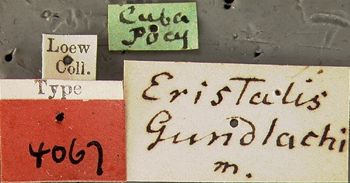 Cuba
Poey
Loew
Coll.
Type
4067
Eristalis
Gundlachi
m.